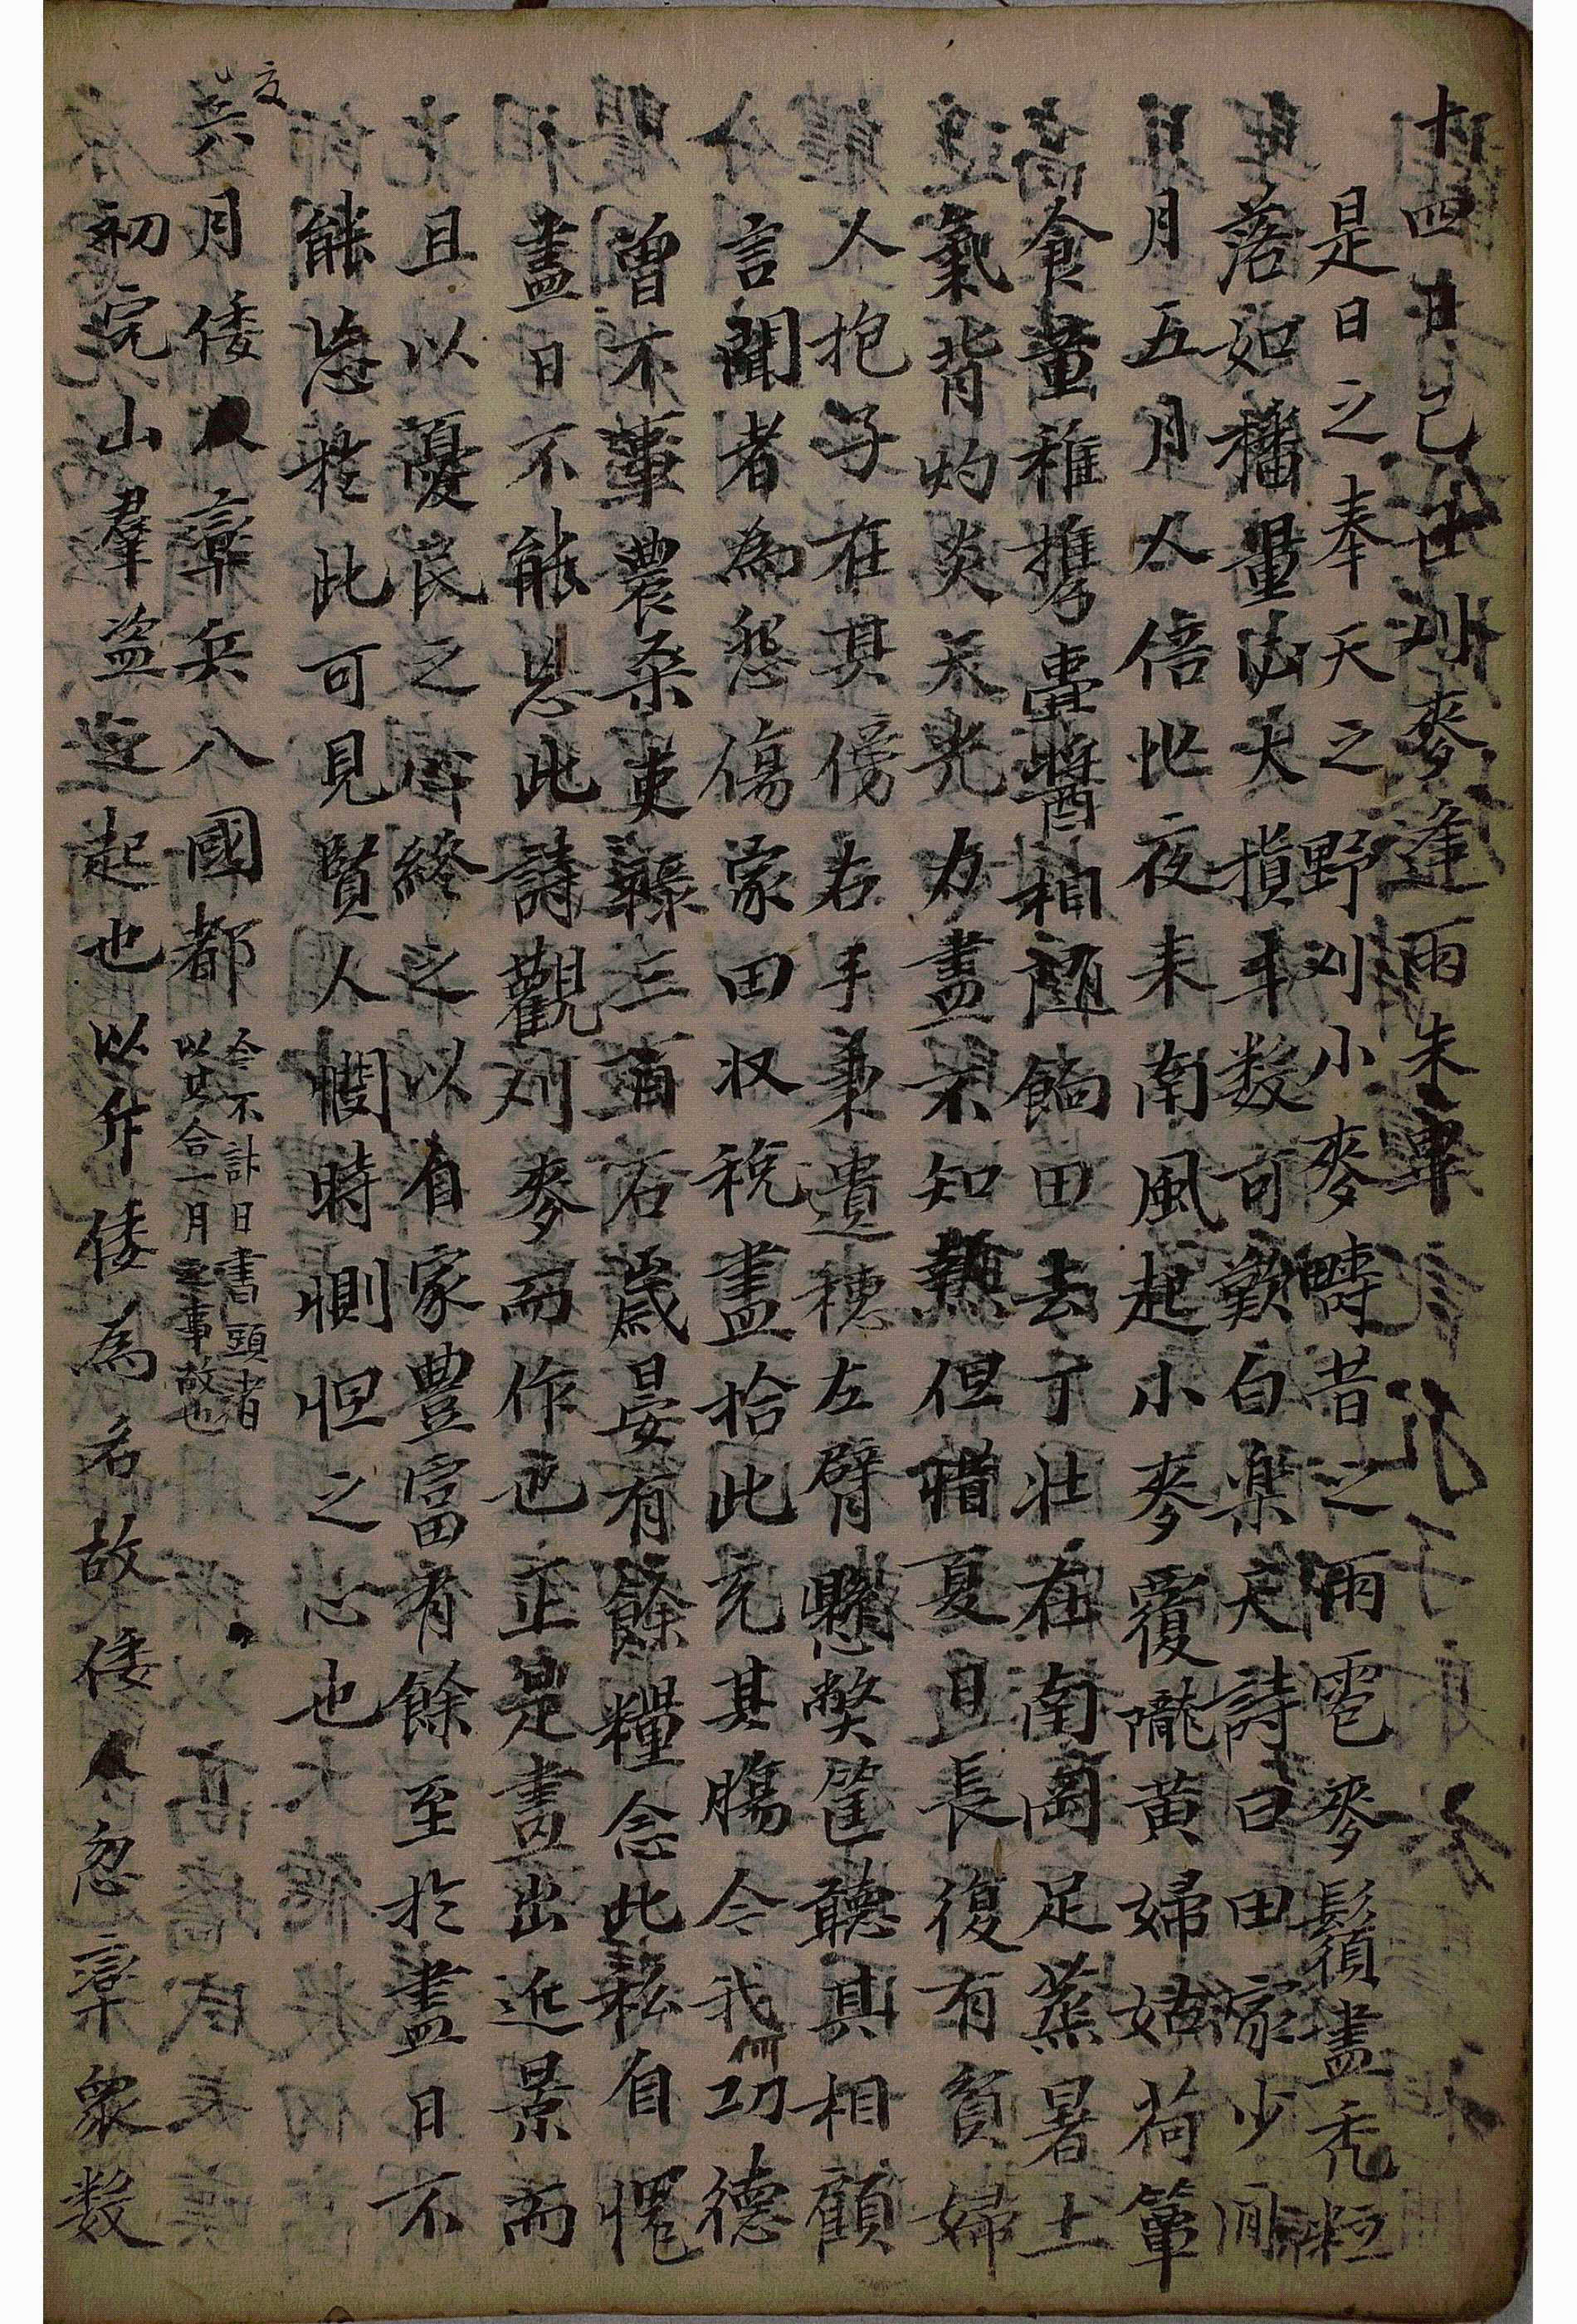 十四日己丑刈麥逢雨未畢
是日之奉天之野刈小麥疇昔之雨雹麥鬚盡禿
落如播量出大損年数可歎白樂天詩曰田家少閑
月五月人倍忙夜来南風起小麥覆隴黄婦姑荷簞
食童稚携壷醬相随餉田去丁壮在南崗足蒸暑土
氣背灼炎天光力盡不知熱但惜夏日長復有貧婦
人抱子在其傍右手秉遺穂左臂懸獘筐聽其相顧
言聞者為怨傷家田収税盡拾此充其腸今我何功德
曽不事農桒吏祿三百石歳晏有餘糧念此私自愧
盡日不能忘此詩觀刈麥而作也正是畫出近景而
且以憂民之心終之以自家豊富有餘至於盡日不
能忘於此可見賢人憫時惻怛之心也
六月倭人率兵入國都
今不計日書頭者
以其合一月之事故也
初完山羣盗迭起也以斥倭為名故倭人忽率衆数